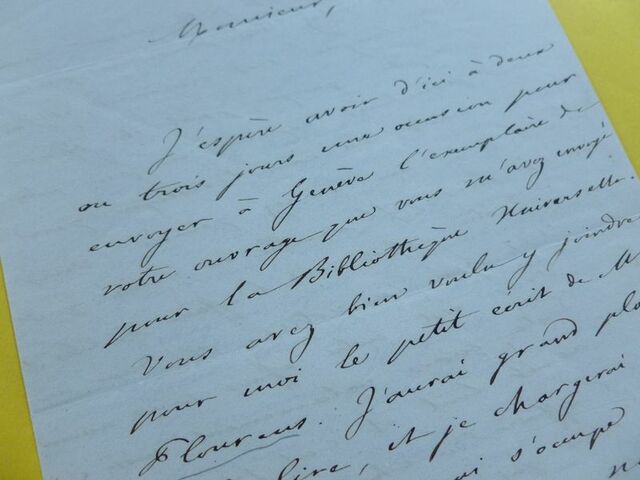 Monsieur,
J'espère avoir d'ici à deux
ou trois jours une occasion pour
envoyer à Genève l'exemplaire de
votre ouvrage que vous m'avez envoyé
pour la Bibliothèque Universelle.
Vous avez bien voulu y joindre
pour moi le petit écrit de M
Flourens. J'aurai grand pla
lire, et je chargerai
s'occupe